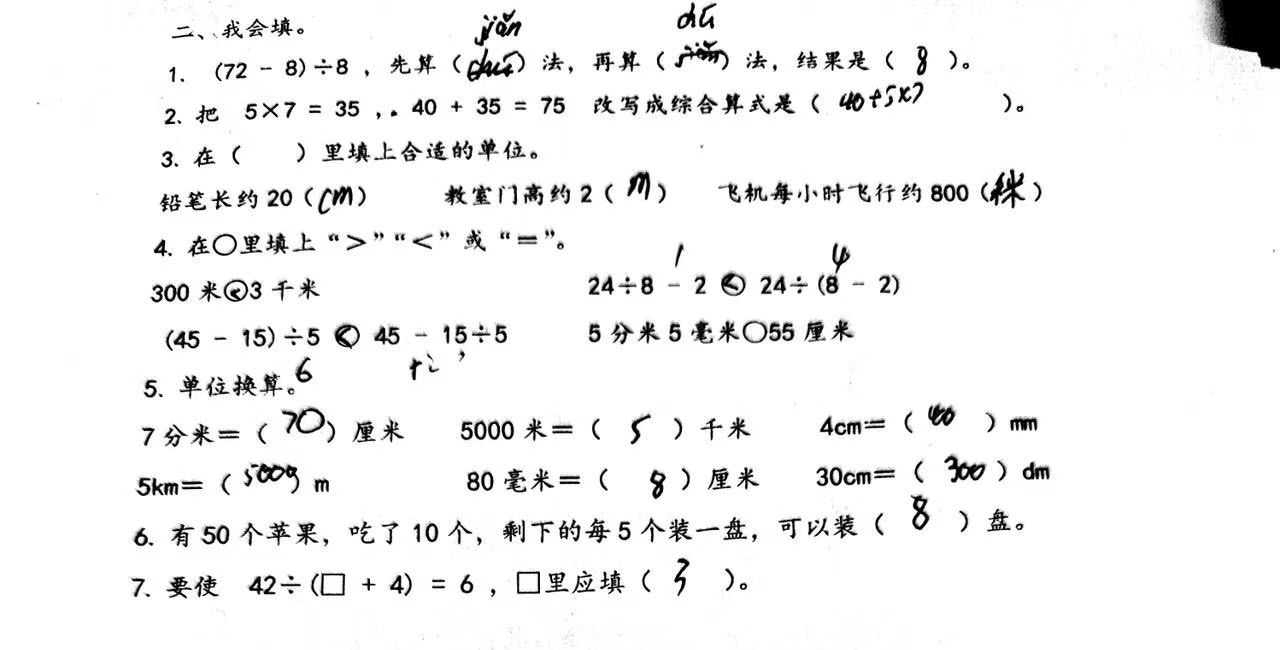 二、我会填。
jiǎn chú
1. (72 - 8)÷8，先算（ ）法，再算（ ）法，结果是（ 8 ）。
2. 把 5×7 = 35，40 + 35 = 75 改写成综合算式是（ 40+5×7 ）。
3. 在（ ）里填上合适的单位。
铅笔长约20（cm） 教室门高约2（ m ） 飞机每小时飞行约800（ 米）
4. 在○里填上“>”“<”或“=”。
1 4
300 米<3 千米 24÷8 - 2 < 24÷(8 - 2)
(45 - 15)÷5 < 45 - 15÷5 5分米5毫米○55厘米
6
5. 单位换算。
7分米=（ 70 ）厘米 5000米=（ 5 ）千米 4cm=（ 40 ）mm
5km=（ 5000 ）m 80毫米=（ 8 ）厘米 30cm=（ 300 ）dm
6. 有50个苹果，吃了10个，剩下的每5个装一盘，可以装（ 8 ）盘。
7. 要使 42÷(□ + 4) = 6，□里应填（ 3 ）。